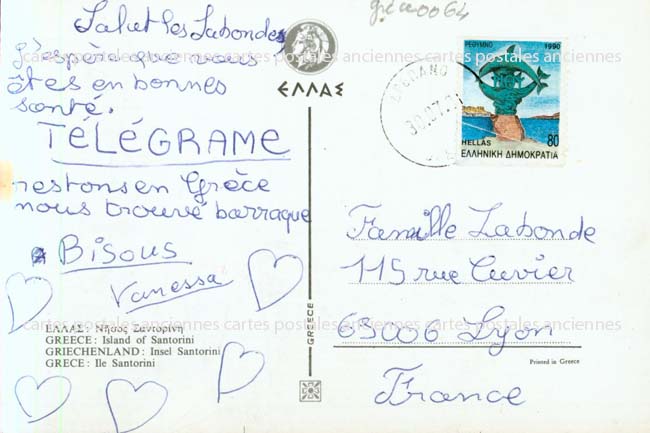 grece0064
Salut les Labondes
j'espère que vous
êtes en bonnes
santé.
TÉLÉGRAME
restons en Grèce
nous trouvé barraque
Bisous
Vanessa
ΕΛΛΑΣ: Νῆσος Σαντορίνη
GREECE: Island of Santorini
GRIECHENLAND: Insel Santorini
GRECE: Ile Santorini
ΕΛΛΑΣ
GREECE
ΡΕΘΥΜΝΟ 1990
HELLAS 80
ΕΛΛΗΝΙΚΗ ΔΗΜΟΚΡΑΤΙΑ
30.07.91
Famille Labonde
115 rue Cuvier
69006 Lyon
France
Printed in Greece
cartes postales anciennes cartes postales anciennes cartes postales anciennes
cartes postales anciennes cartes postales anciennes cartes postales anciennes